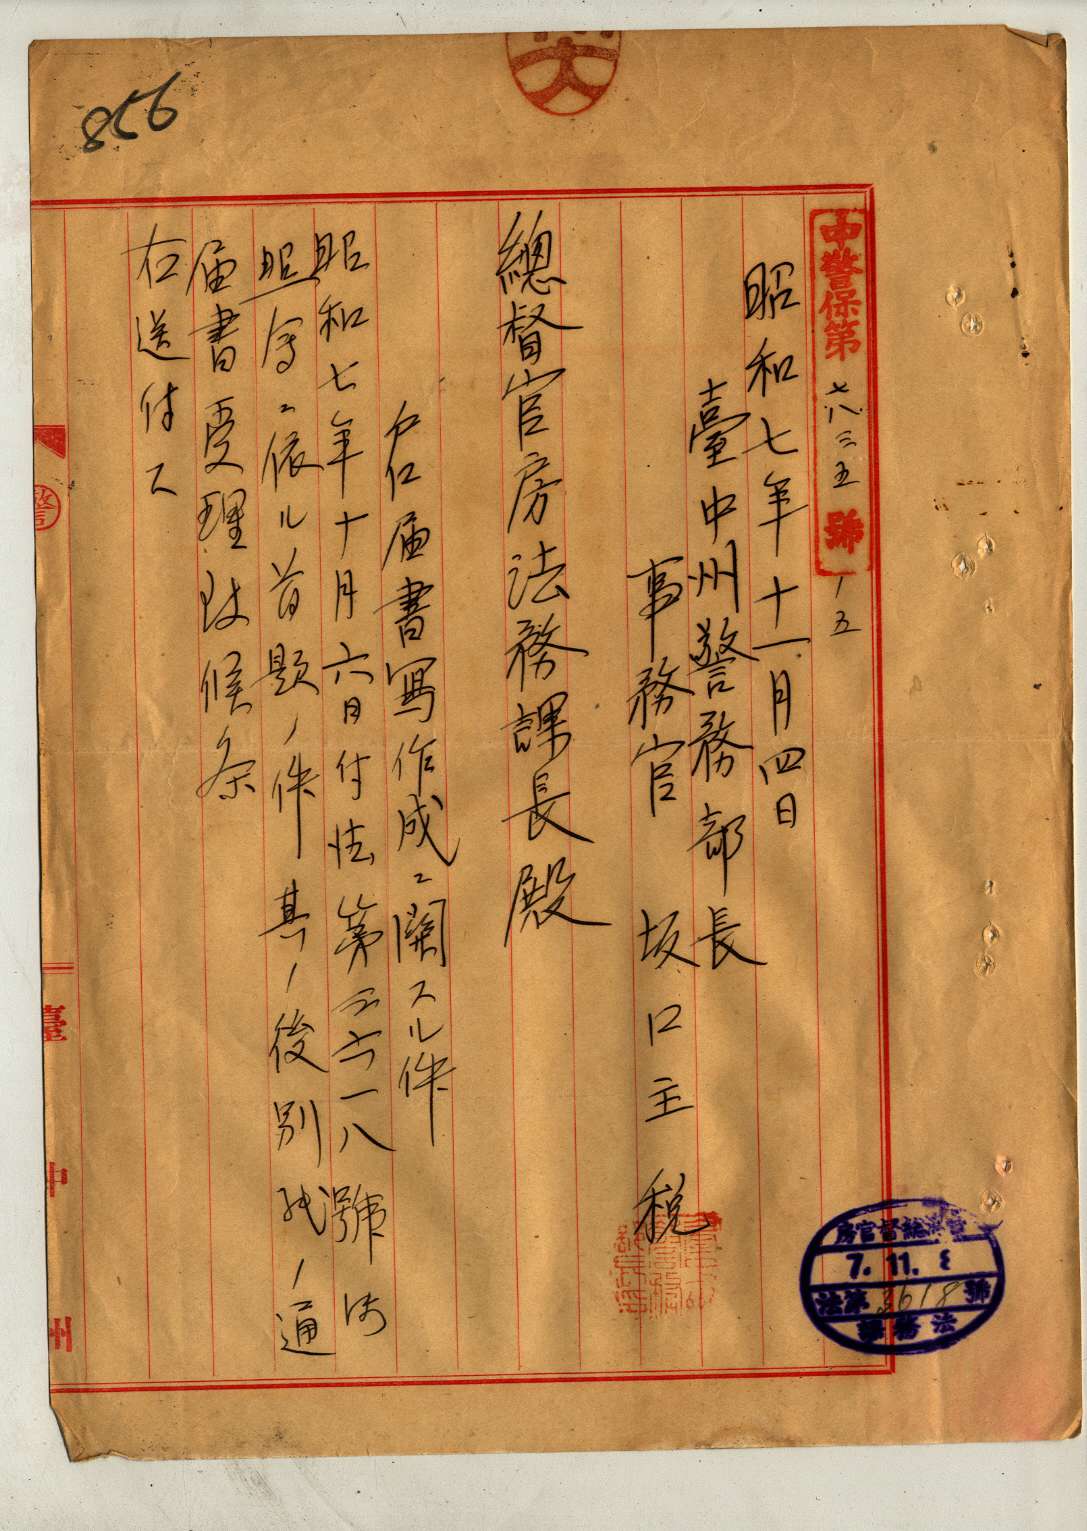 856
中警保第七八三五號ノ五
昭和七年十一月四日
臺中州警務部長
事務官 坂口主税
總督官房法務課長殿
戸口届書寫作成ニ關スル件
昭和七年十月六日付法第三六一八號御
照會ニ依ル首題ノ件其ノ後別紙ノ通
届書受理致候条
右送付ス
臺灣總督官房
7. 11. 8
法第3618號
法務課
臺中州